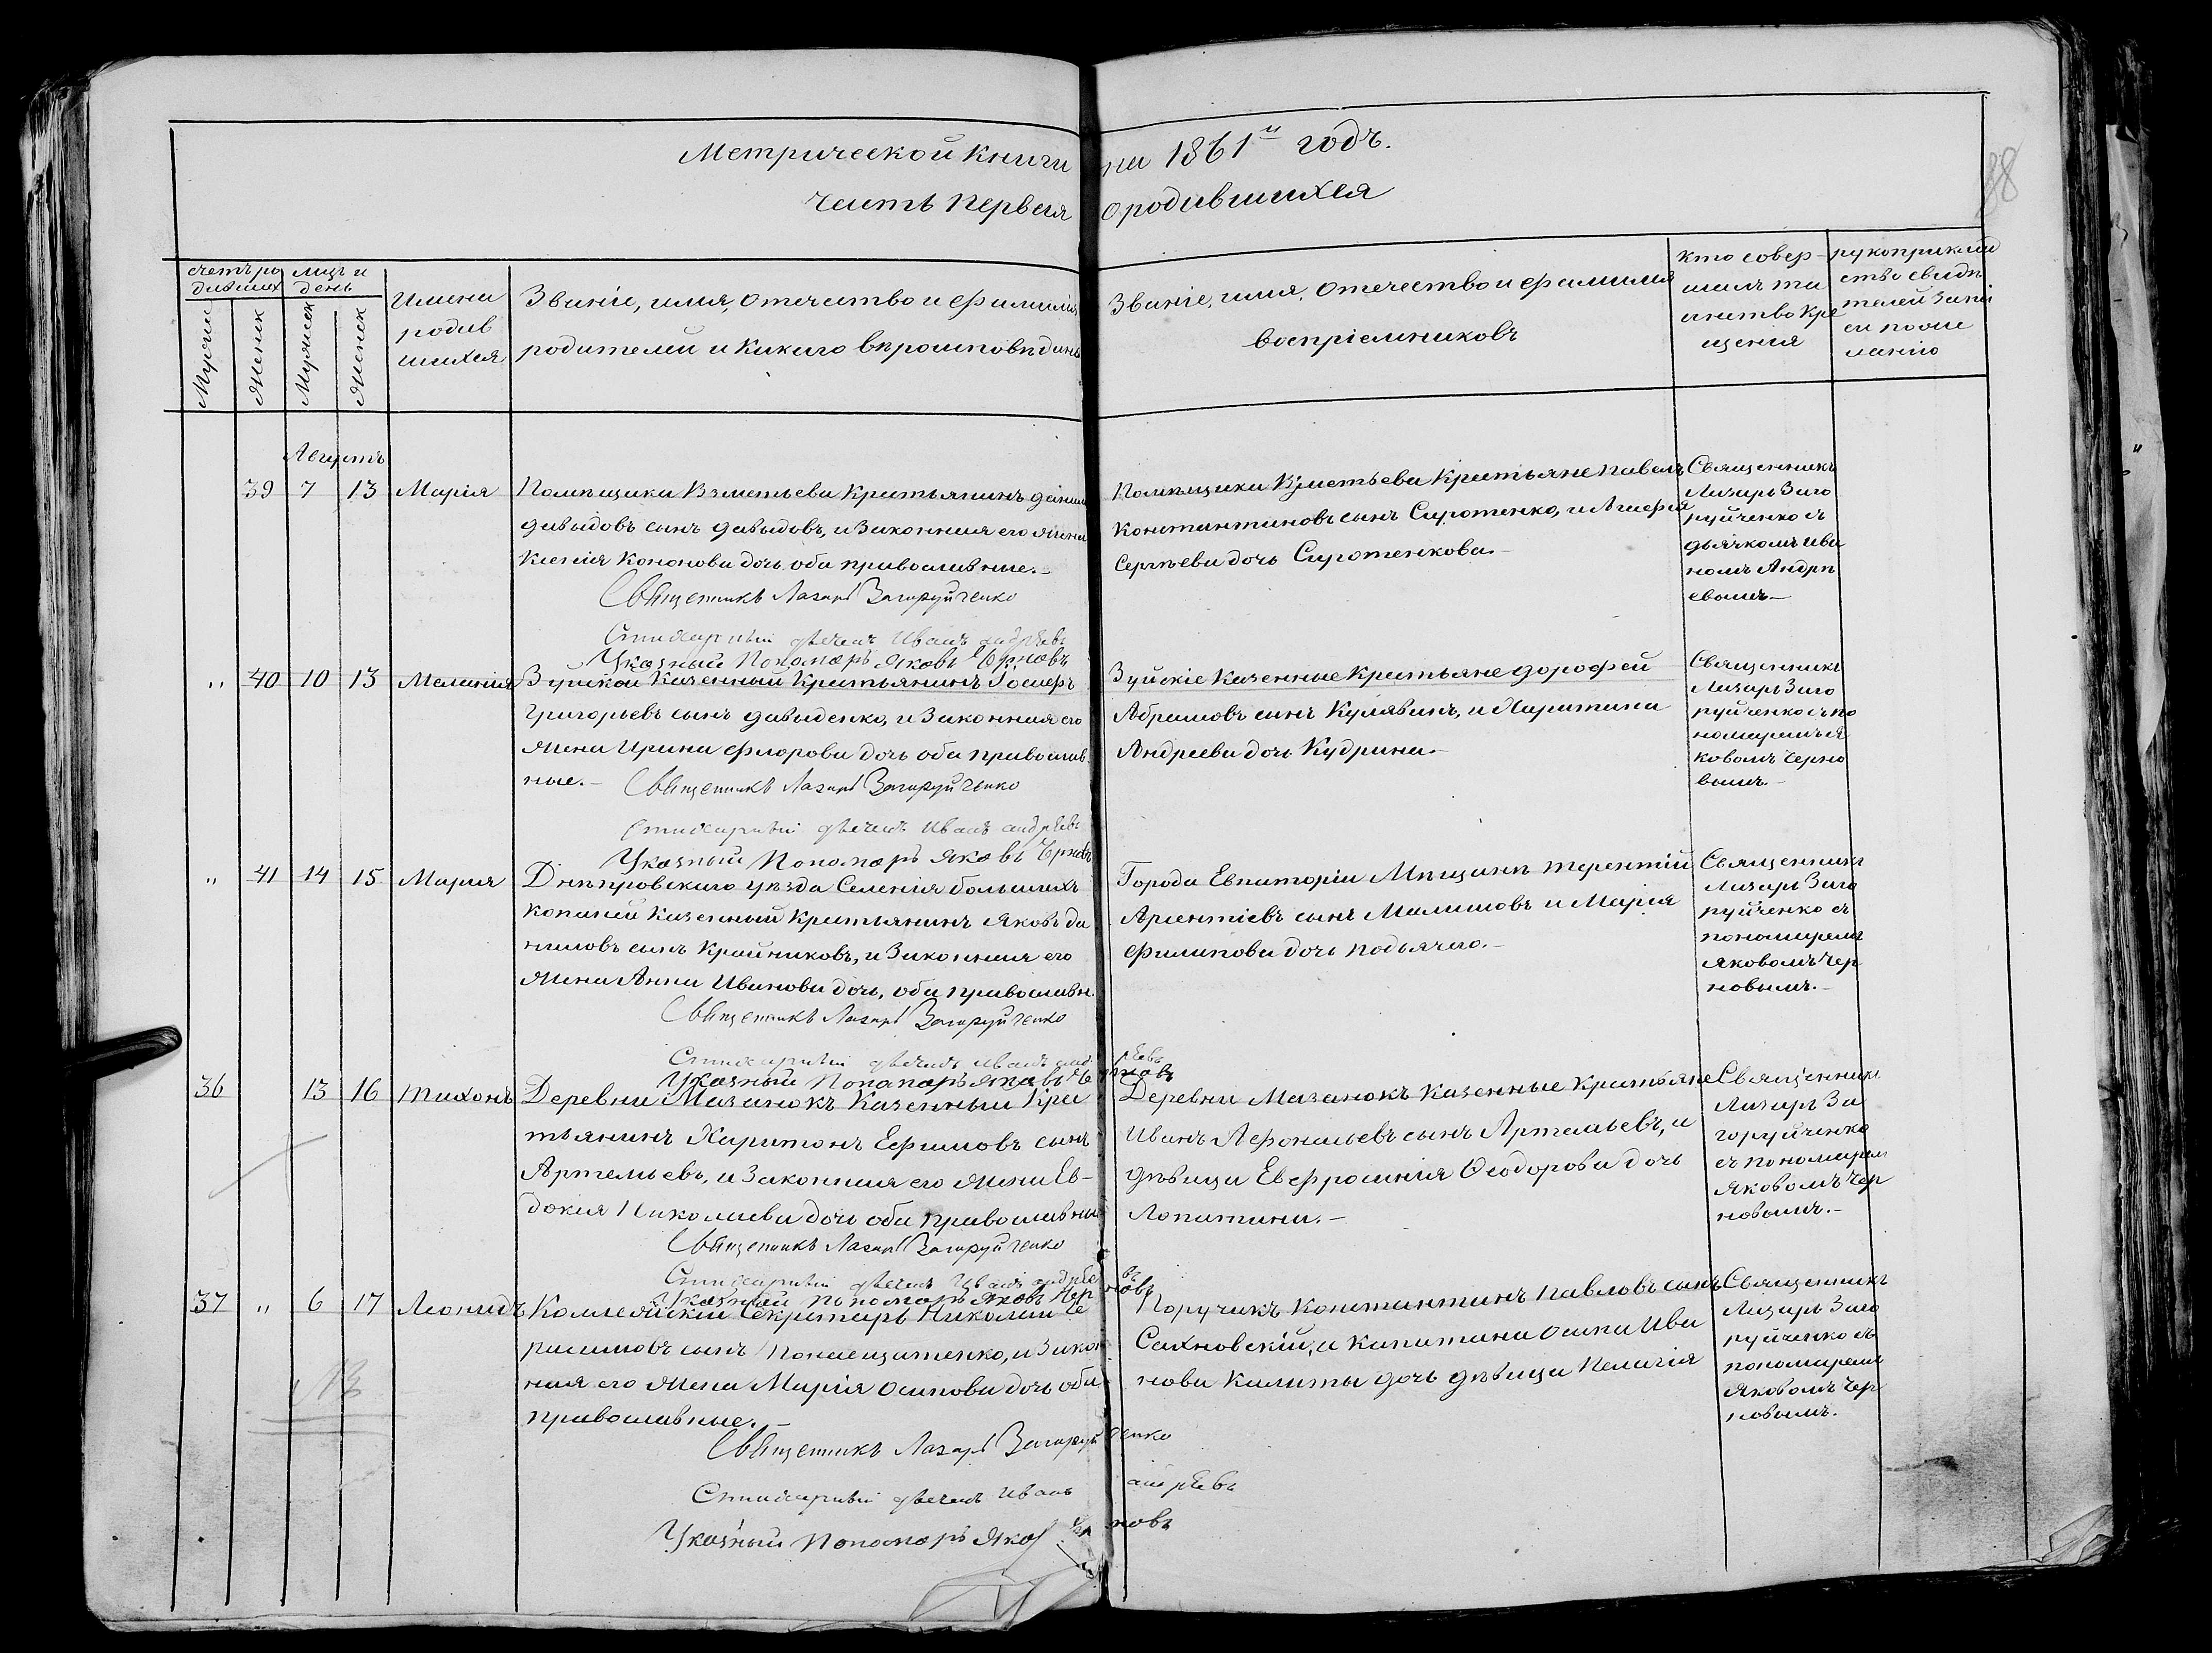 Метрической книги на 1861й годъ.
Часть первая о родившихся
88
счетъ ро
дивших
мцъ и
день
Мужеск
Женск
Мужеск
Женск
Имена
родив
шихся
Званіе, имя, отечество и фамилія
родителей и какаго вѣроисповѣданія
Званіе, имя, отечество и фамилія
воспріемниковъ
кто совер-
шилъ та
инство кре
щенія
рукоприклад
ство свидѣ
телей запи
си по же
ланію
Августъ
39 7 13 Марія
Помѣщика Взметьева крестьянинъ Даніилъ
Давыдовъ сынъ Давыдовъ, и законная его жена
Ксенія Кононова дочь оба православные.-
Священникъ Лазарь Загоруйченко
Стихарный дьячекъ Иванъ Андреевъ
Указный Пономарь Яковъ Черновъ
Помѣщика Взметьева крестьяне Павелъ
Константиновъ сынъ Сиротенко, и Агафія
Сергѣева дочь Сиротенкова.-
Священникъ
Лазарь Заго
руйченко съ
дьячкомъ Ива
номъ Андрѣ
евымъ.-
„ 40 10 13 Меланія
Зуйской казенный крестьянинъ Іосифъ
Григорьевъ сынъ Давыденко, и законная его
жена Ирина Флорова дочь оба православ
ные.- Священникъ Лазарь Загоруйченко
Стихарный дьячекъ Иванъ Андреевъ
Указный Пономарь Яковъ Черновъ
Зуйскіе казенные крестьяне Дорофей
Абрамовъ сынъ Кулявинъ, и Харитина
Андреева дочь Кудрина.-
Священникъ
Лазарь Заго
руйченко съ по
номаремъ Я
ковомъ Черно
вымъ.-
„ 41 14 15 Мария
Днѣпровскаго уѣзда Селенія большихъ
Копаней казенный крестьянинъ Яковъ Да
ниловъ сынъ Крайниковъ, и законная его
жена Анна Иванова дочь, оба православн.
Священникъ Лазарь Загоруйченко
Стихарный дьячекъ Иванъ Андреевъ
Указный Пономарь Яковъ Черновъ
Города Евпаторіи Мѣщане Терентій
Арсентіевъ сынъ Малишовъ и Марія
Филипова дочь Подьячаго.-
Священникъ
Лазарь Заго
руйченко съ
пономаремъ
Яковомъ Чер
новымъ.-
36 13 16 Тихонъ
Деревни Мазанокъ казенный кре
стьянинъ Харитонъ Ефимовъ сынъ
Артемьевъ, и законная его жена Ев-
докія Николаева дочь оба православны
Священникъ Лазарь Загоруйченко
Стихарный дьячекъ Иванъ Андреевъ
Указный Пономарь Яковъ Черновъ
Деревни Мазанокъ казенные крестьяне
Иванъ Афонасьевъ сынъ Артемьевъ, и
дѣвица Евфросинія Ѳеодорова дочь
Лопатина.-
Священникъ
Лазарь За
горуйченко
съ пономарем
Яковомъ Чер
новымъ.-
37 „ 6 17 Леонидъ
Коллежскій Секретарь Николай Ге
расимовъ сынъ Понаещатенко, и закон
ная его жена Марія Осипова дочь оба
православные.-
Священникъ Лазарь Загоруйченко
Стихарный дьячекъ Иванъ Андреевъ
Указный Пономарь Яковъ Черновъ
Поручикъ Константинъ Павловъ сынъ
Сахновскій, и Капитана Осипа Ива
нова Калиты дочь дѣвица Пелагія
Священникъ
Лазарь Заго
руйченко съ
пономаремъ
Яковомъ Чер
новымъ.